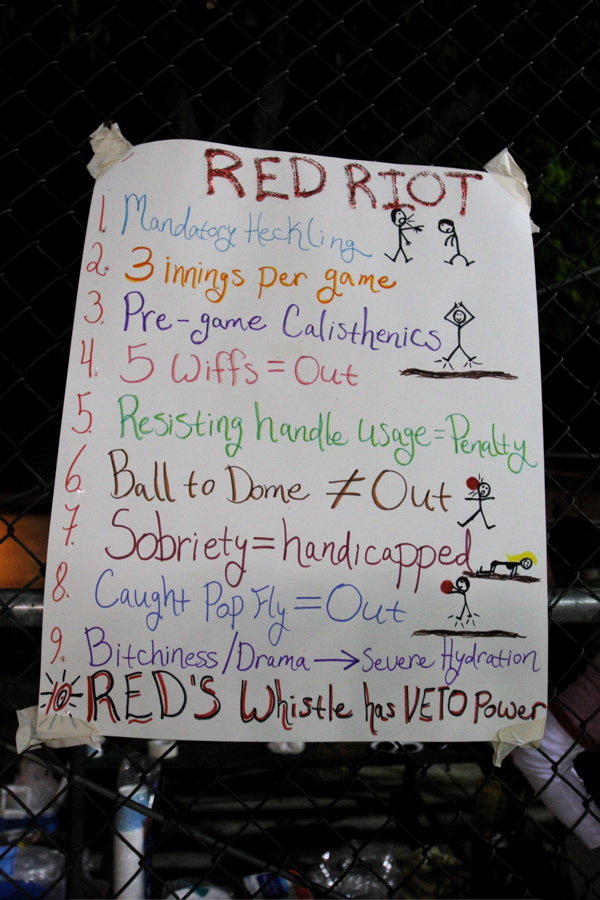 RED RIOT
1. Mandatory Heckling
2. 3 innings per game
3. Pre-game Calisthenics
4. 5 Wiffs = Out
5. Resisting handle usage = Penalty
6. Ball to Dome ≠ Out
7. Sobriety = handicapped
8. Caught Pop Fly = Out
9. Bitchiness/Drama → Severe Hydration
RED'S Whistle has VETO Power